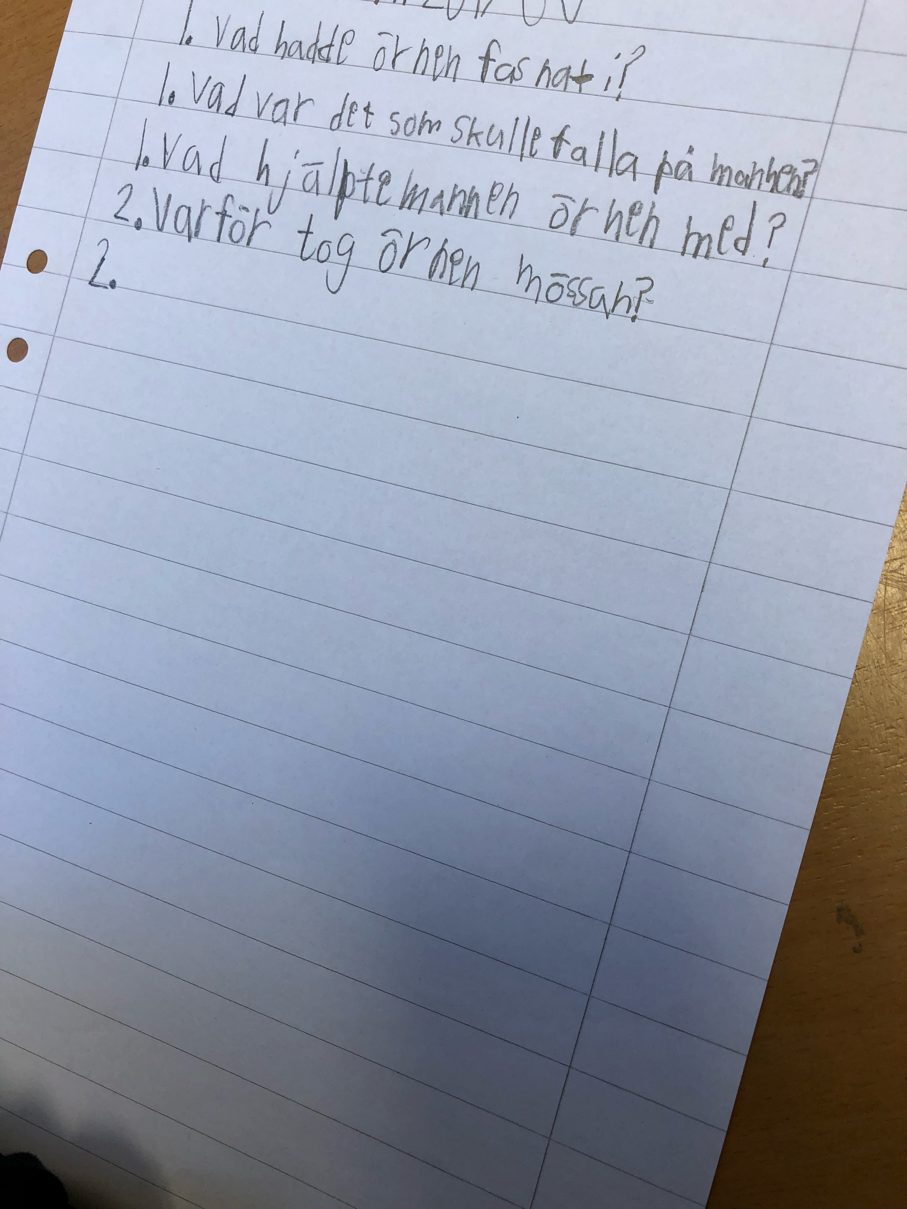 1. Vad hadde örnen fasnat i?
1. Vad var det som skulle falla på mannen?
1. Vad hjälpte mannen örnen med?
2. Varför tog örnen mössan?
2.